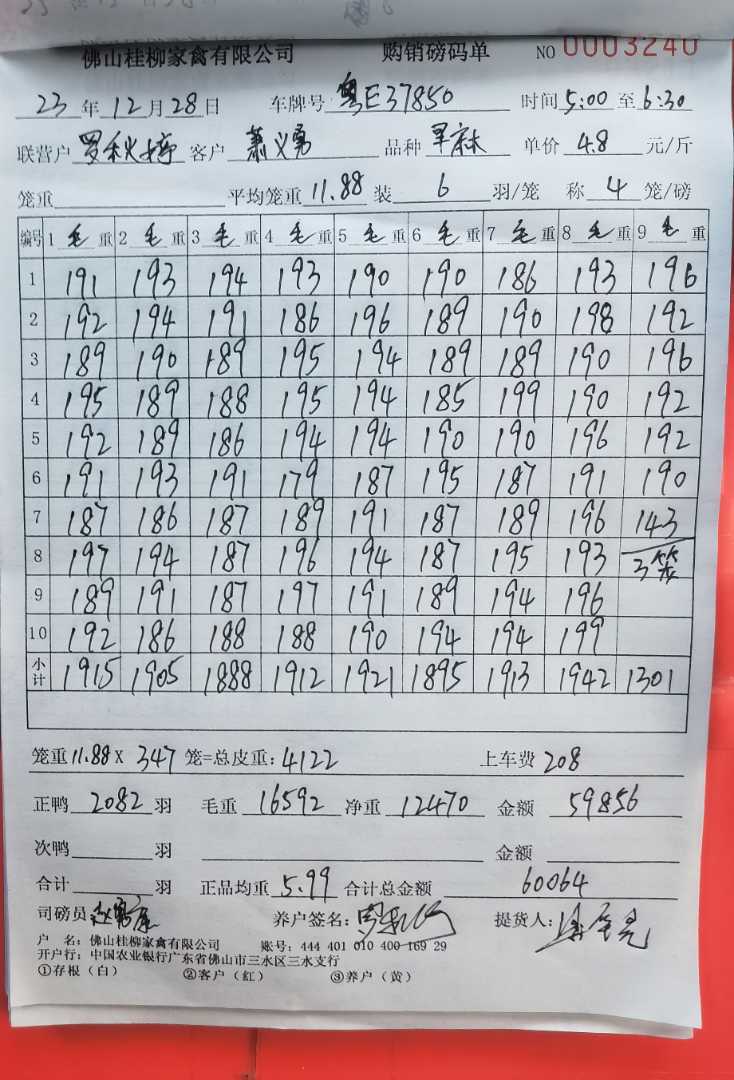 佛山桂柳家禽有限公司 购销磅码单 NO 0003240
23 年 12 月 28 日 车牌号 粤E37850 时间 5:00 至 6:30
联营户 罗秋婷 客户 萧义勇 品种 单价 4.8 元/斤
笼重 平均笼重 11.88 装 6 羽/笼 称 4 笼/磅
编号 1 毛 重 2 毛 重 3 毛 重 4 毛 重 5 毛 重 6 毛 重 7 毛 重 8 毛 重 9 毛 重
1 191 193 194 193 190 190 186 193 196
2 192 194 191 186 196 189 190 198 192
3 189 190 189 195 194 189 189 190 196
4 195 189 188 195 194 185 199 190 192
5 192 189 186 194 194 190 190 196 192
6 191 193 191 179 187 195 187 191 190
7 187 186 187 189 191 187 189 196 143
8 197 194 187 196 194 187 195 193 3笼
9 189 191 187 197 191 189 194 196
10 192 186 188 188 190 194 194 199
小计 1915 1905 1888 1912 1921 1895 1913 1942 1301
笼重 11.88 X 347 笼=总皮重: 4122 上车费 208
正鸭 2082 羽 毛重 16592 净重 12470 金额 59856
次鸭 羽 金额
合计 羽 正品均重 5.99 合计总金额 60064
司磅员 养户签名: 提货人:
户 名: 佛山桂柳家禽有限公司 账号: 444 401 010 400 169 29
开户行: 中国农业银行广东省佛山市三水区三水支行
①存根(白) ②客户(红) ③养户(黄)